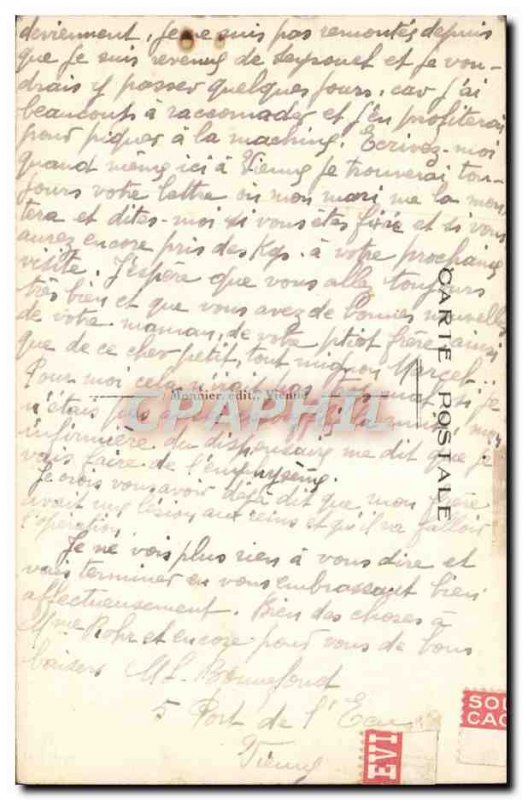 deviennent. Je ne suis pas remontée depuis
que je suis revenue de Seyssuel et je vou-
drais y passer quelques jours, car j'ai
beaucoup à raccomoder et j'en profiterai
pour piquer à la machine. Ecrivez-moi
quand même ici à Vienne je trouverai tou-
jours votre lettre ou mon mari me la mon
tera et dites-moi si vous êtes fixée et si vous
aurez encore pris des Kgs. à votre prochaine
visite. J'espère que vous allez toujours
très bien et que vous avez de bonnes nouvelles
de votre maman, de votre petit frère ainsi
que de ce cher petit, tout mignon Marcel.
Pour moi cela si je
n'étais pas mon
infirmière du dispensaire me dit que je
vais faire de l'emphysème.
Je crois vous avoir déjà dit que mon frère
avait une lésion aux reins et qu'il va falloir
l'opération
Je ne vois plus rien à vous dire et
vais terminer en vous embrassant bien
affectueusement. Bien des choses à
Mme Rohr et encore pour vous de bons
baisers M L Bonnefond
5 Port de l'Eau
Vienne
Monnier, édit., Vienne
CARTE POSTALE
CPAPHIL.COM
EVI
SOU
CAC